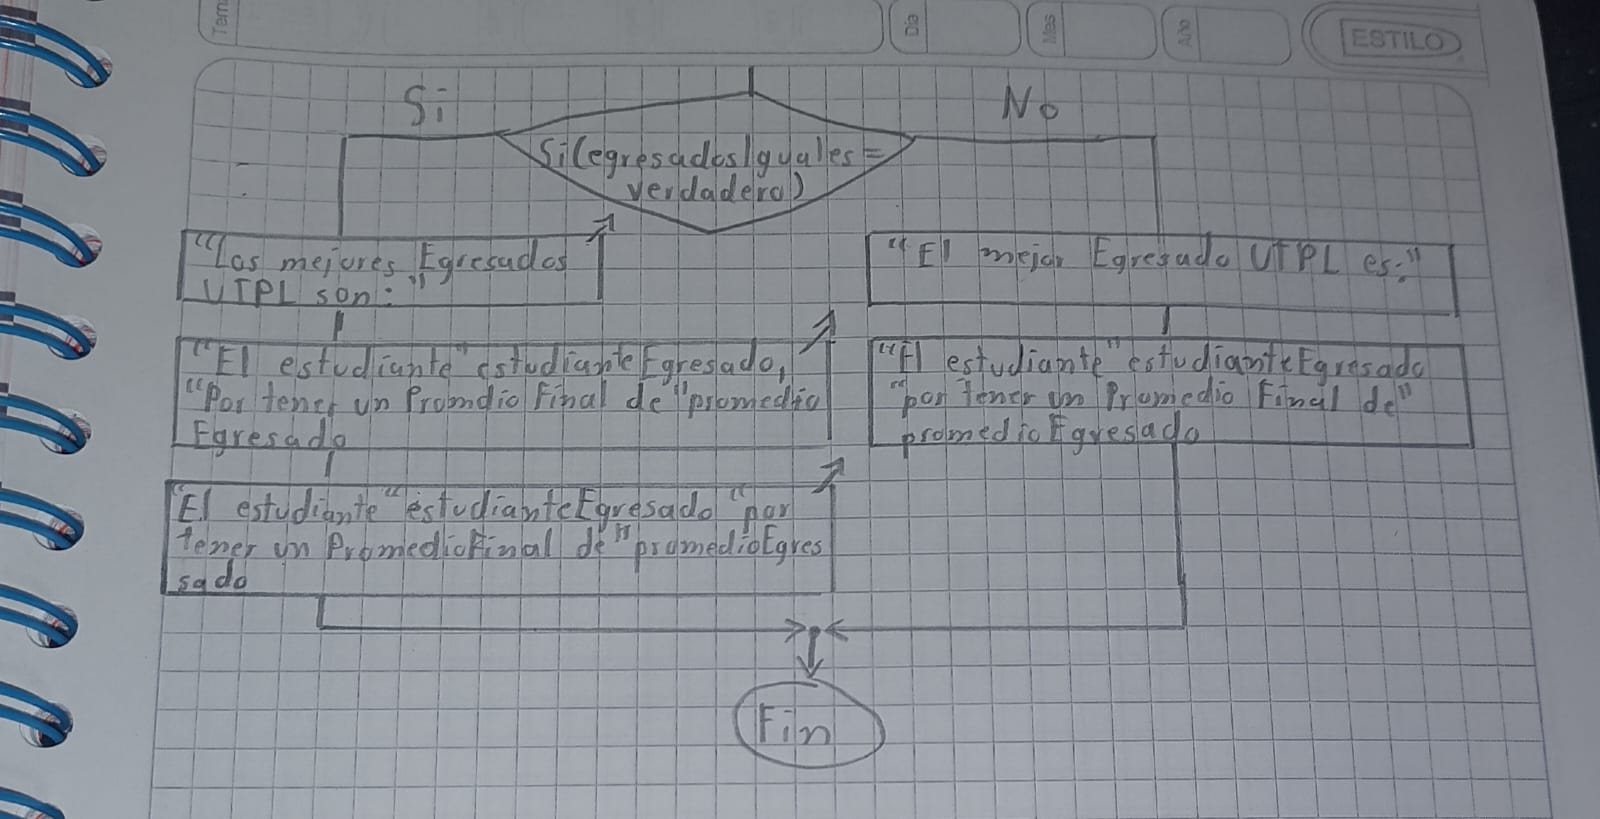 Tem
Dia
Mes
Año
ESTILO
Si
No
Si(egresadosIguales=
verdadero)
"Los mejores Egresados
UTPL son:"
"El mejor Egresado UTPL es:"
"El estudiante" estudianteEgresado,
"Por tener un Promdio Final de" promedio
Egresado
"El estudiante" estudianteEgresado
"por tener un Promedio Final de"
promedioEgresado
"El estudiante" estudianteEgresado "por
tener un PromedioFinal de" promedioEgres
sado
Fin